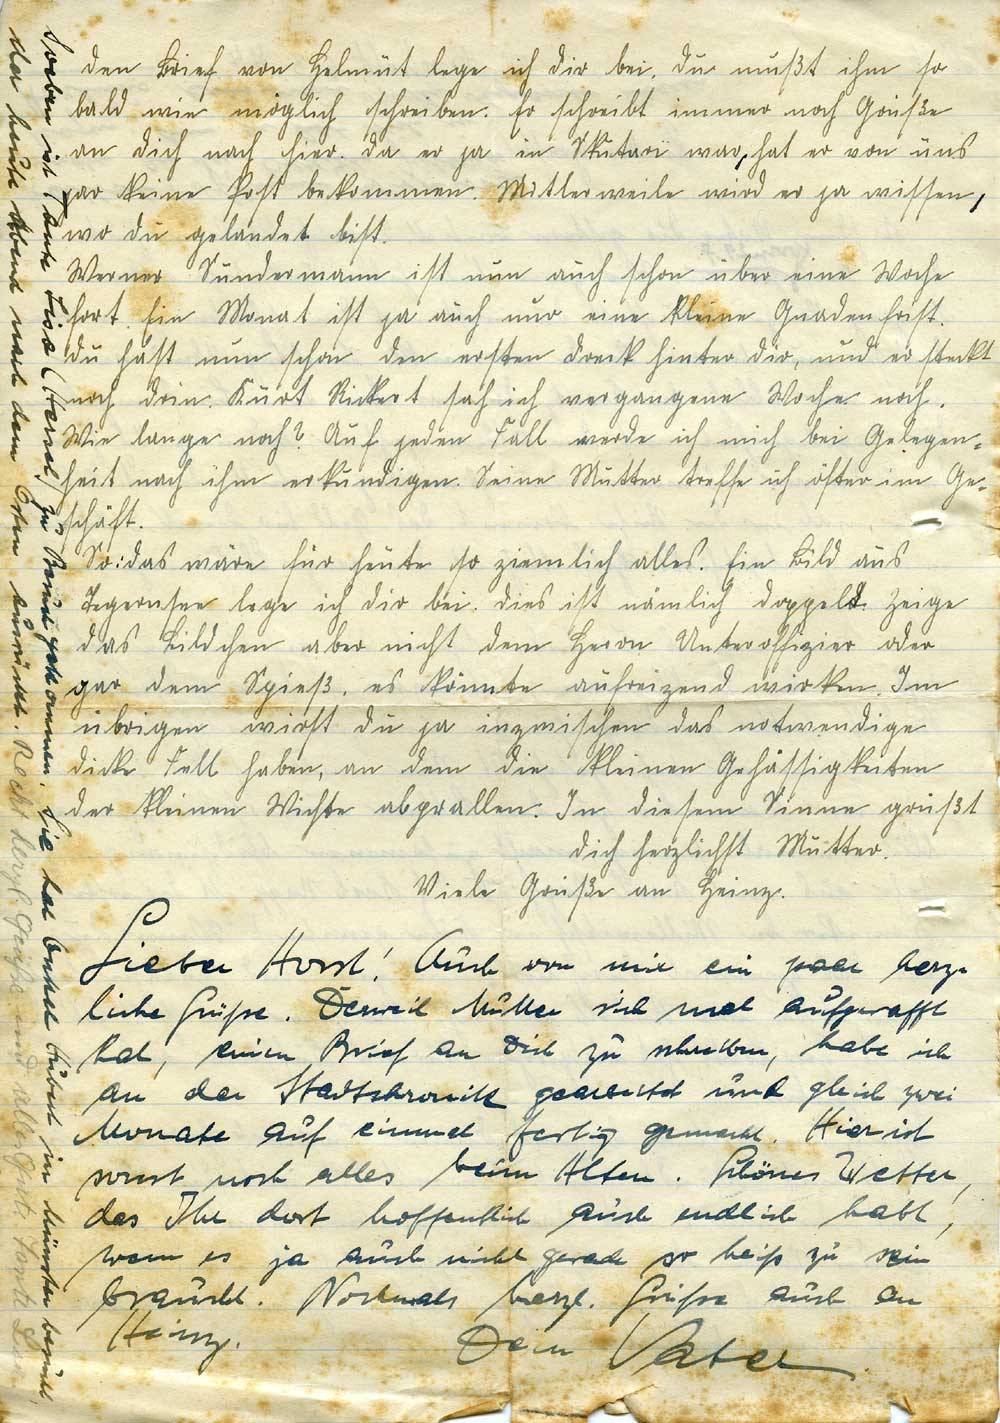 den Brief von Helmut lege ich dir bei. du mußt ihm so
bald wie möglich schreiben. Er schreibt immer noch Grüße
an dich nach hier. da er ja in Skutari war, hat er von uns
gar keine Post bekommen. Mittlerweile wird er ja wissen,
wo du gelandet bist.
Werner Sundermann ist nun auch schon über eine Woche
fort. Ein Monat ist ja auch nur eine kleine Gnadenfrist.
du hast nun schon den ersten dreck hinter dir, und er steckt
noch drin. Kurt Rickert sah ich vergangene Woche noch.
Wie lange noch? Auf jeden Fall werde ich mich bei Gelegen-
heit nach ihm erkundigen. Seine Mutter treffe ich öfter im Ge-
schäft.
So: das wäre für heute so ziemlich alles. Ein Bild aus
Tegernsee lege ich dir bei. dies ist nämlich doppelt. Zeige
das Bildchen aber nicht dem Herrn Unteroffizier oder
gar dem Spieß, es könnte aufreizend wirken. Im
übrigen wirst du ja inzwischen das notwendige
dicke Fell haben, an dem die kleinen Gehässigkeiten
der kleinen Wichte abprallen. In diesem Sinne grüßt
dich herzlichst Mutter.
Viele Grüße an Heinz.
Lieber Horst! Auch von mir ein paar herz-
liche Grüße. Derweil Mutter sich mal aufgerafft
hat, einen Brief an Dich zu schreiben, habe ich
an der Stadtchronik gearbeitet und gleich zwei
Monate auf einmal fertig gemacht. Hier ist
sonst noch alles beim Alten. Schönes Wetter,
das Ihr dort hoffentlich auch endlich habt,
wenn es ja auch nicht gerade so heiß zu sein
braucht. Nochmals herzl. Grüße auch an
Heinz. Dein Vater
Soeben ist Tante Lisa zu Besuch gekommen. Sie hat Onkel Hubert in Münster besucht,
da heute Abend nach dem Osten ausrückt. Recht herzl. Grüße und alles Gute Tante